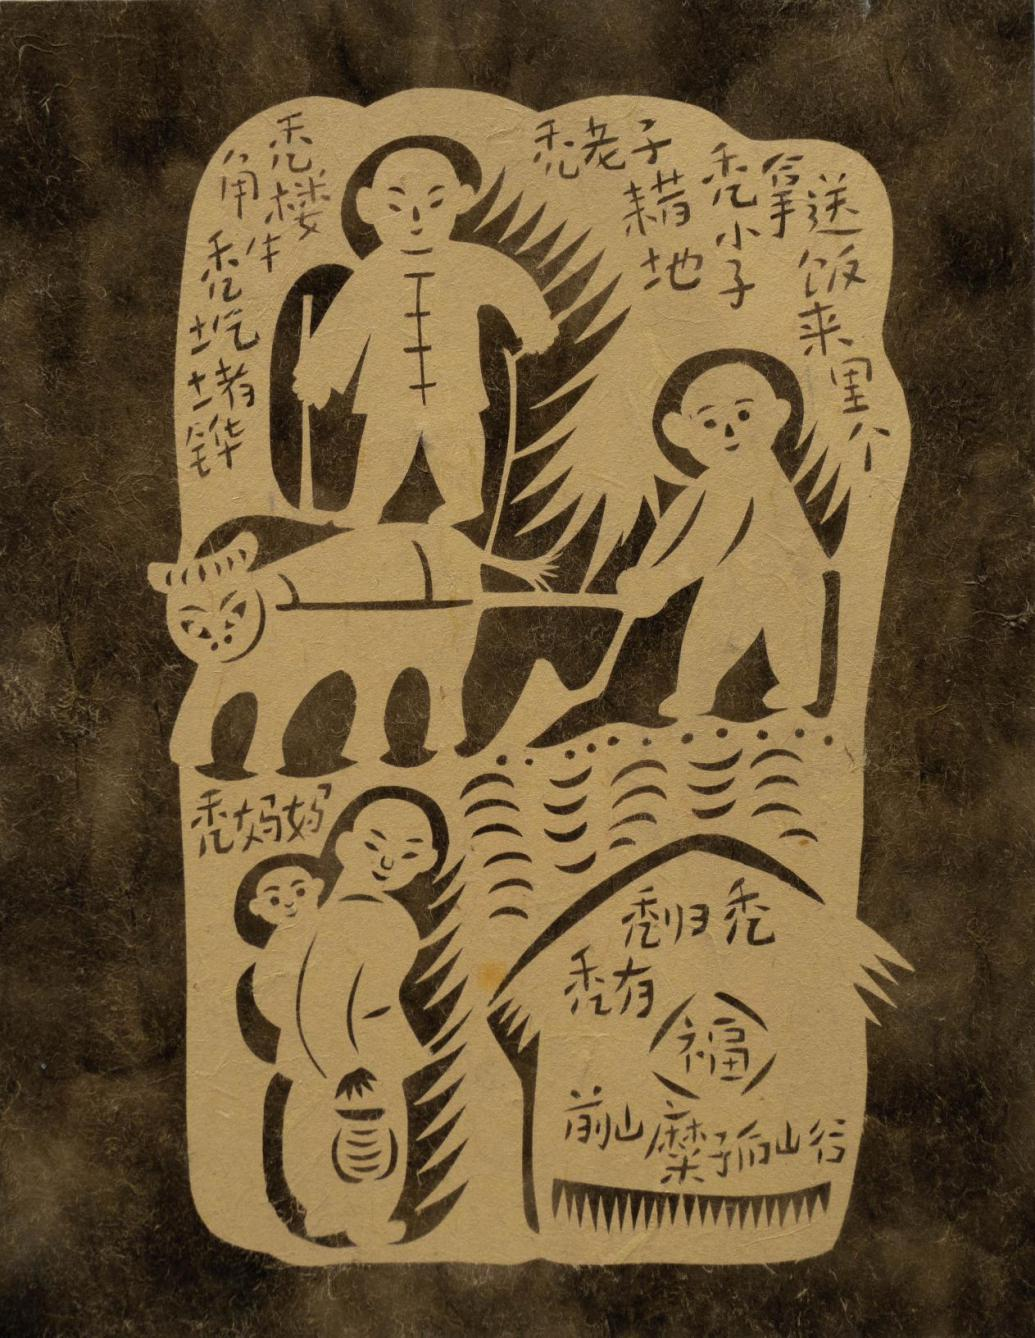 秃老子
地
秃小子
送饭来
里个
秃楼
角牛
秃圪堵铧
秃妈妈
秃归秃
秃有
福
前山糜子后山